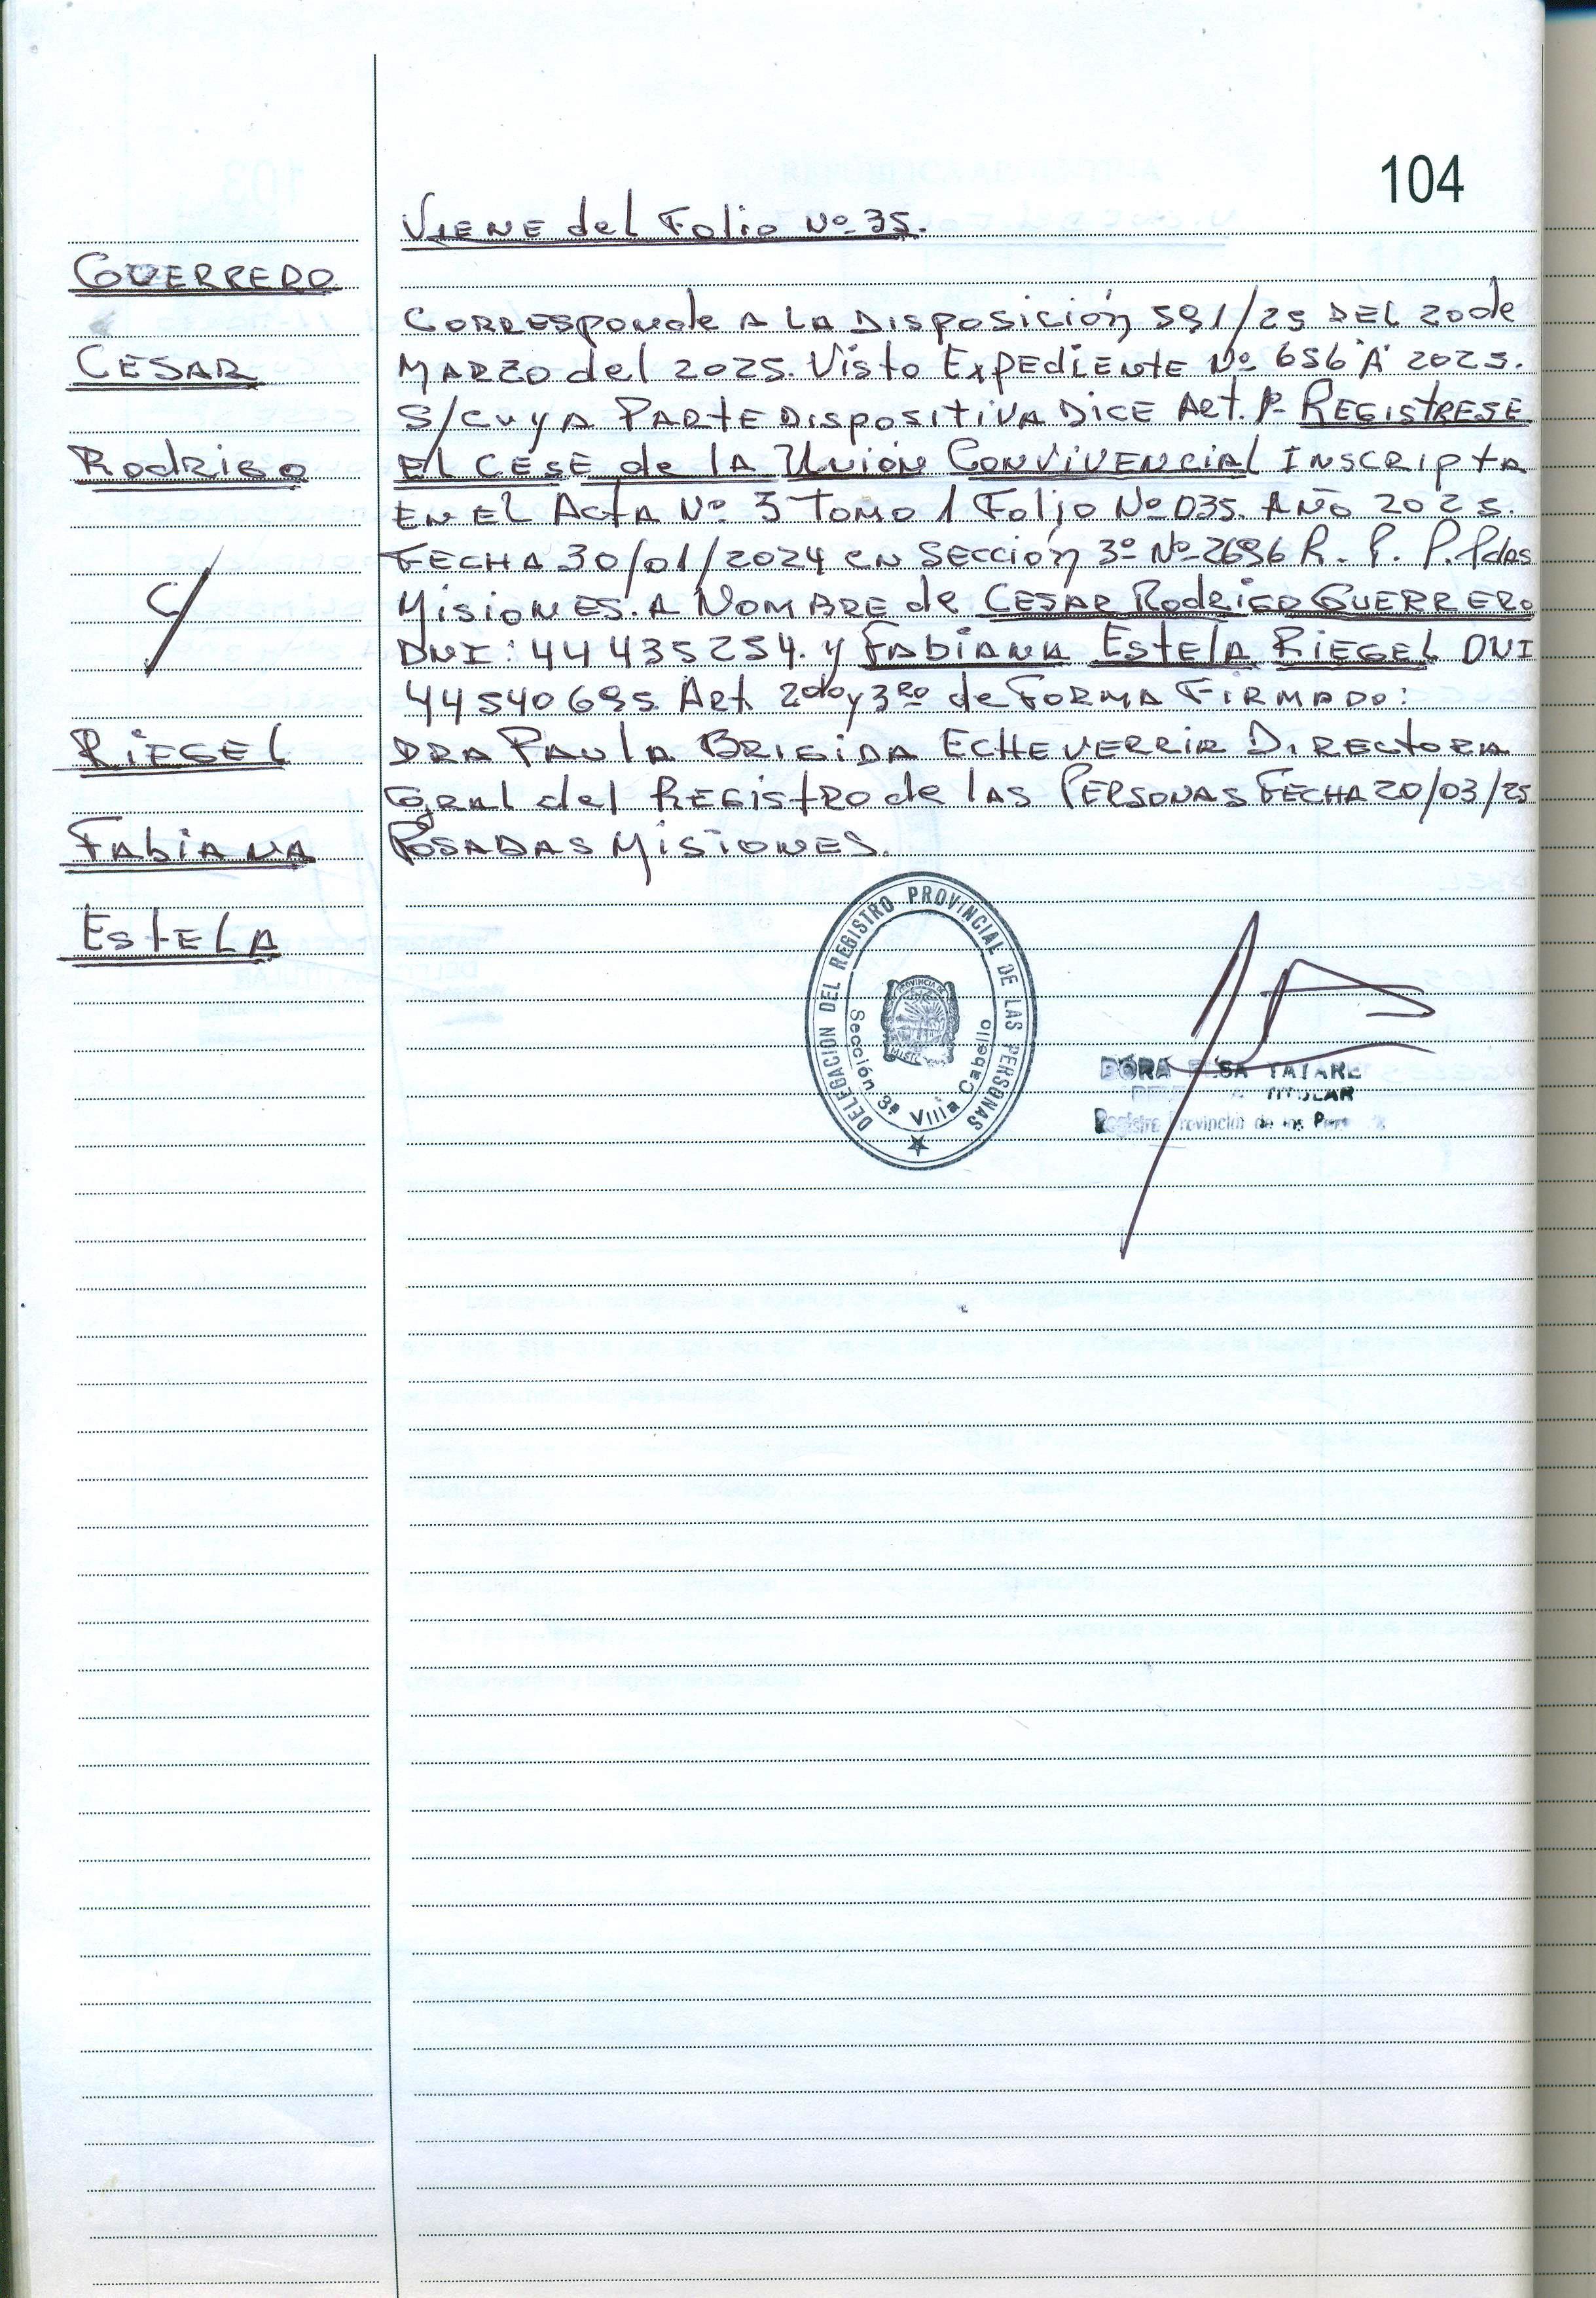 104
VIENE del Folio Nº 35.
GUERRERO
CESAR
Rodrigo
C/
RIEGEL
Fabiana
Estela
Corresponde A LA Disposición 591/25 DEL 20 de
MARZO del 2025. Visto Expediente Nº 656 "A" 2025.
S/cuya PARTE Dispositiva DICE Art. 1º REGISTRESE
El CESE de la Unión CONVIVENCIAL INSCRIPTA
EN EL Acta Nº 3 Tomo 1 Folio Nº 035. AÑO 2025.
FECHA 30/01/2024 en Sección 3º Nº 2696 R. P. P. Pdas
Misiones. A NOMBRE de CESAR Rodrigo GUERRERO
DNI: 44 435 254. y Fabiana Estela RIEGEL DNI
44540695. Art. 2do y 3ro de FORMA FIRMADO:
DRA PAULA BRIGIDA ECHEVERRIA DIRECTORA
Gral del REGISTRO de las PERSONAS FECHA 20/03/25
POSADAS MISIONES.
DELEGACION DEL REGISTRO PROVINCIAL DE LAS PERSONAS
PROVINCIA DE
Sección 3ª Villa Cabello
DORA ELSA TATARE
TITULAR
Registro Provincial de las